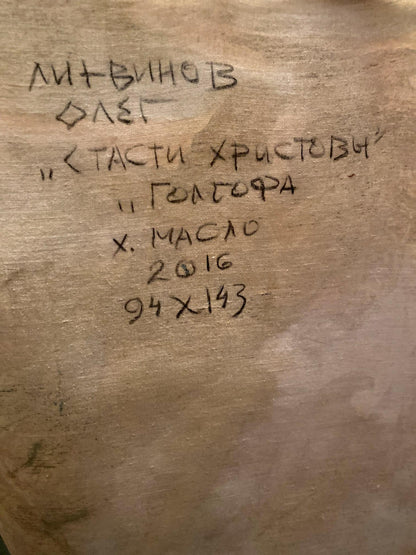 ЛИТВИНОВ
ОЛЕГ
„СТАСТИ ХРИСТОВЫ"
„ГОЛГОФА
Х. МАСЛО
2016
94Х143